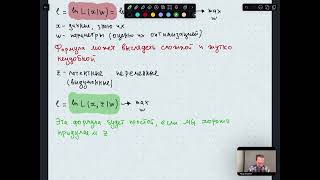 ℓ = ln L(x|w) = → max w
x - данные, знаю их
w - параметры (оценю их оптимизацией)
Формула может выглядеть сложной и жутко
неудобной
z - латентные переменные
(выдуманные)
ℓ = ln L(x, z|w) → max w
Эта формула будет простой, если мы хорошо
придумаем z